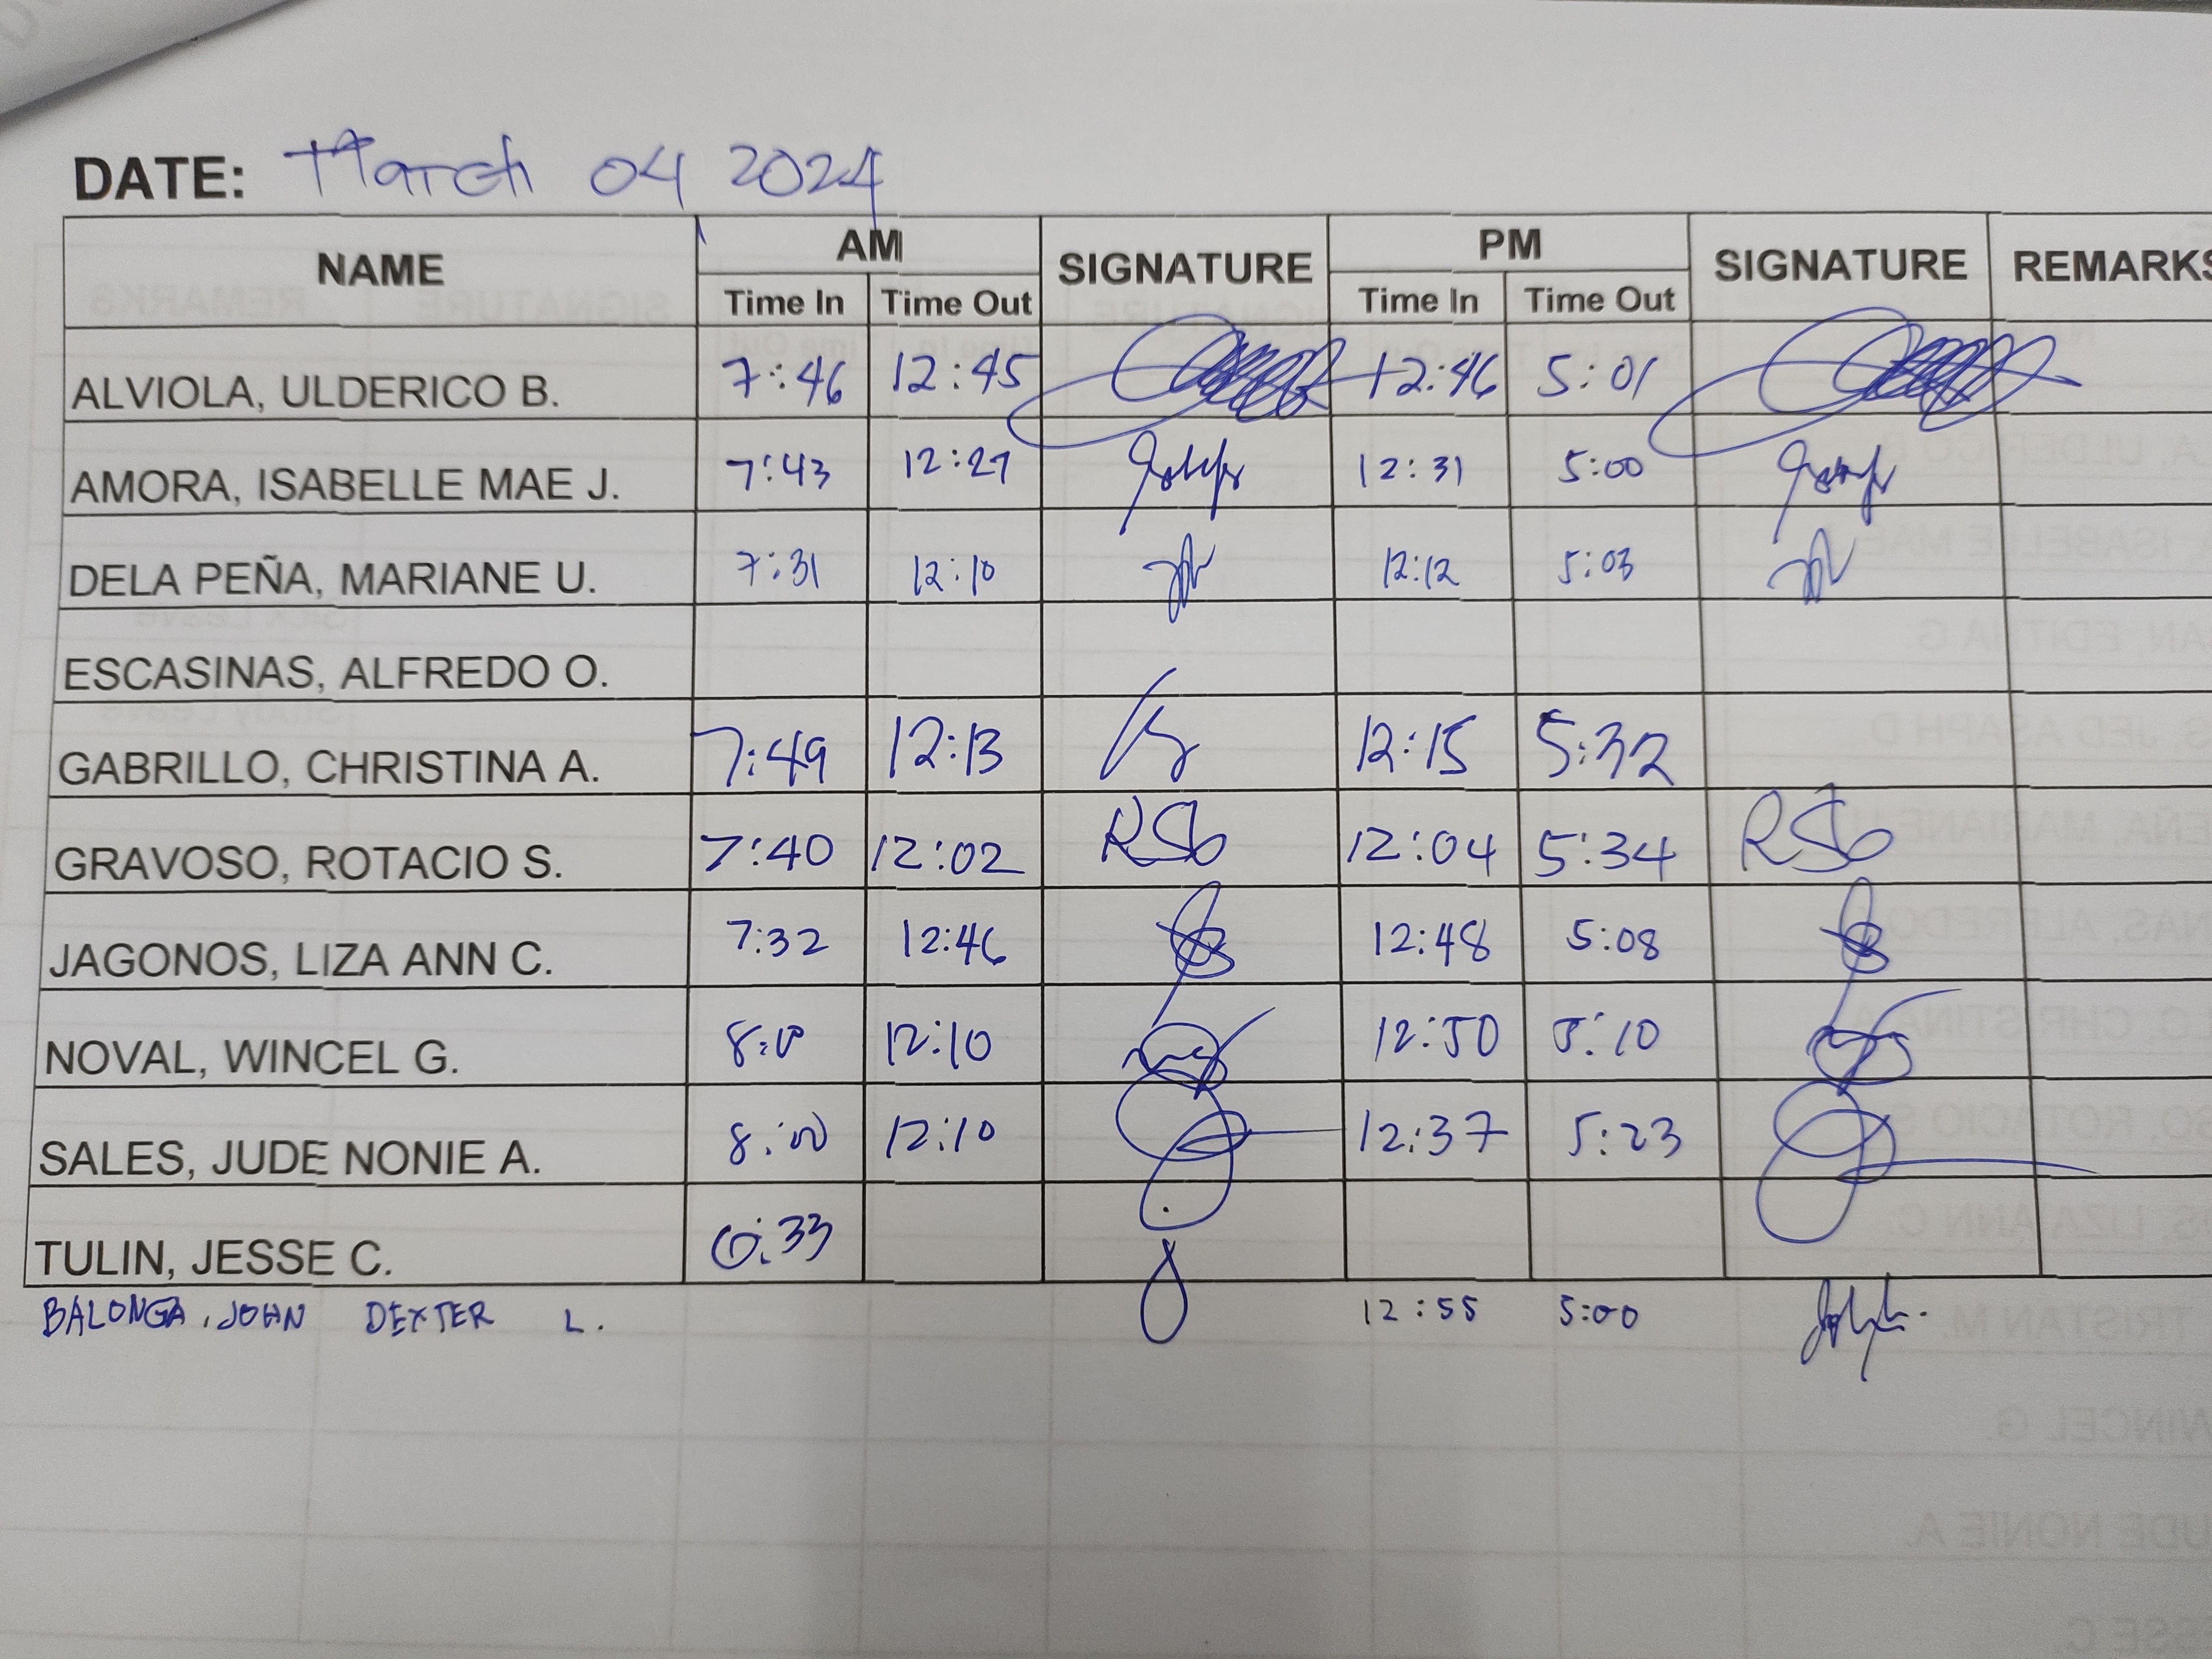 DATE: March 04 2024
NAME AM SIGNATURE PM SIGNATURE REMARKS
Time In Time Out Time In Time Out
ALVIOLA, ULDERICO B. 7:46 12:45 12:46 5:01
AMORA, ISABELLE MAE J. 7:43 12:27 12:31 5:00
DELA PEÑA, MARIANE U. 7:31 12:10 12:12 5:03
ESCASINAS, ALFREDO O.
GABRILLO, CHRISTINA A. 7:49 12:13 12:15 5:32
GRAVOSO, ROTACIO S. 7:40 12:02 RSG 12:04 5:34 RSG
JAGONOS, LIZA ANN C. 7:32 12:46 12:48 5:08
NOVAL, WINCEL G. 8:00 12:10 12:50 5:10
SALES, JUDE NONIE A. 8:00 12:10 12:37 5:23
TULIN, JESSE C. 6:33
BALONGA, JOHN DEXTER L. 12:55 5:00